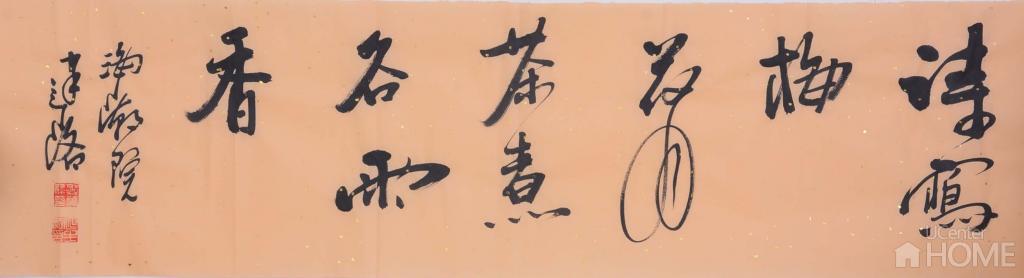 诗寫
梅
花月
茶煮
谷雨
香
院
UCenter
HOME